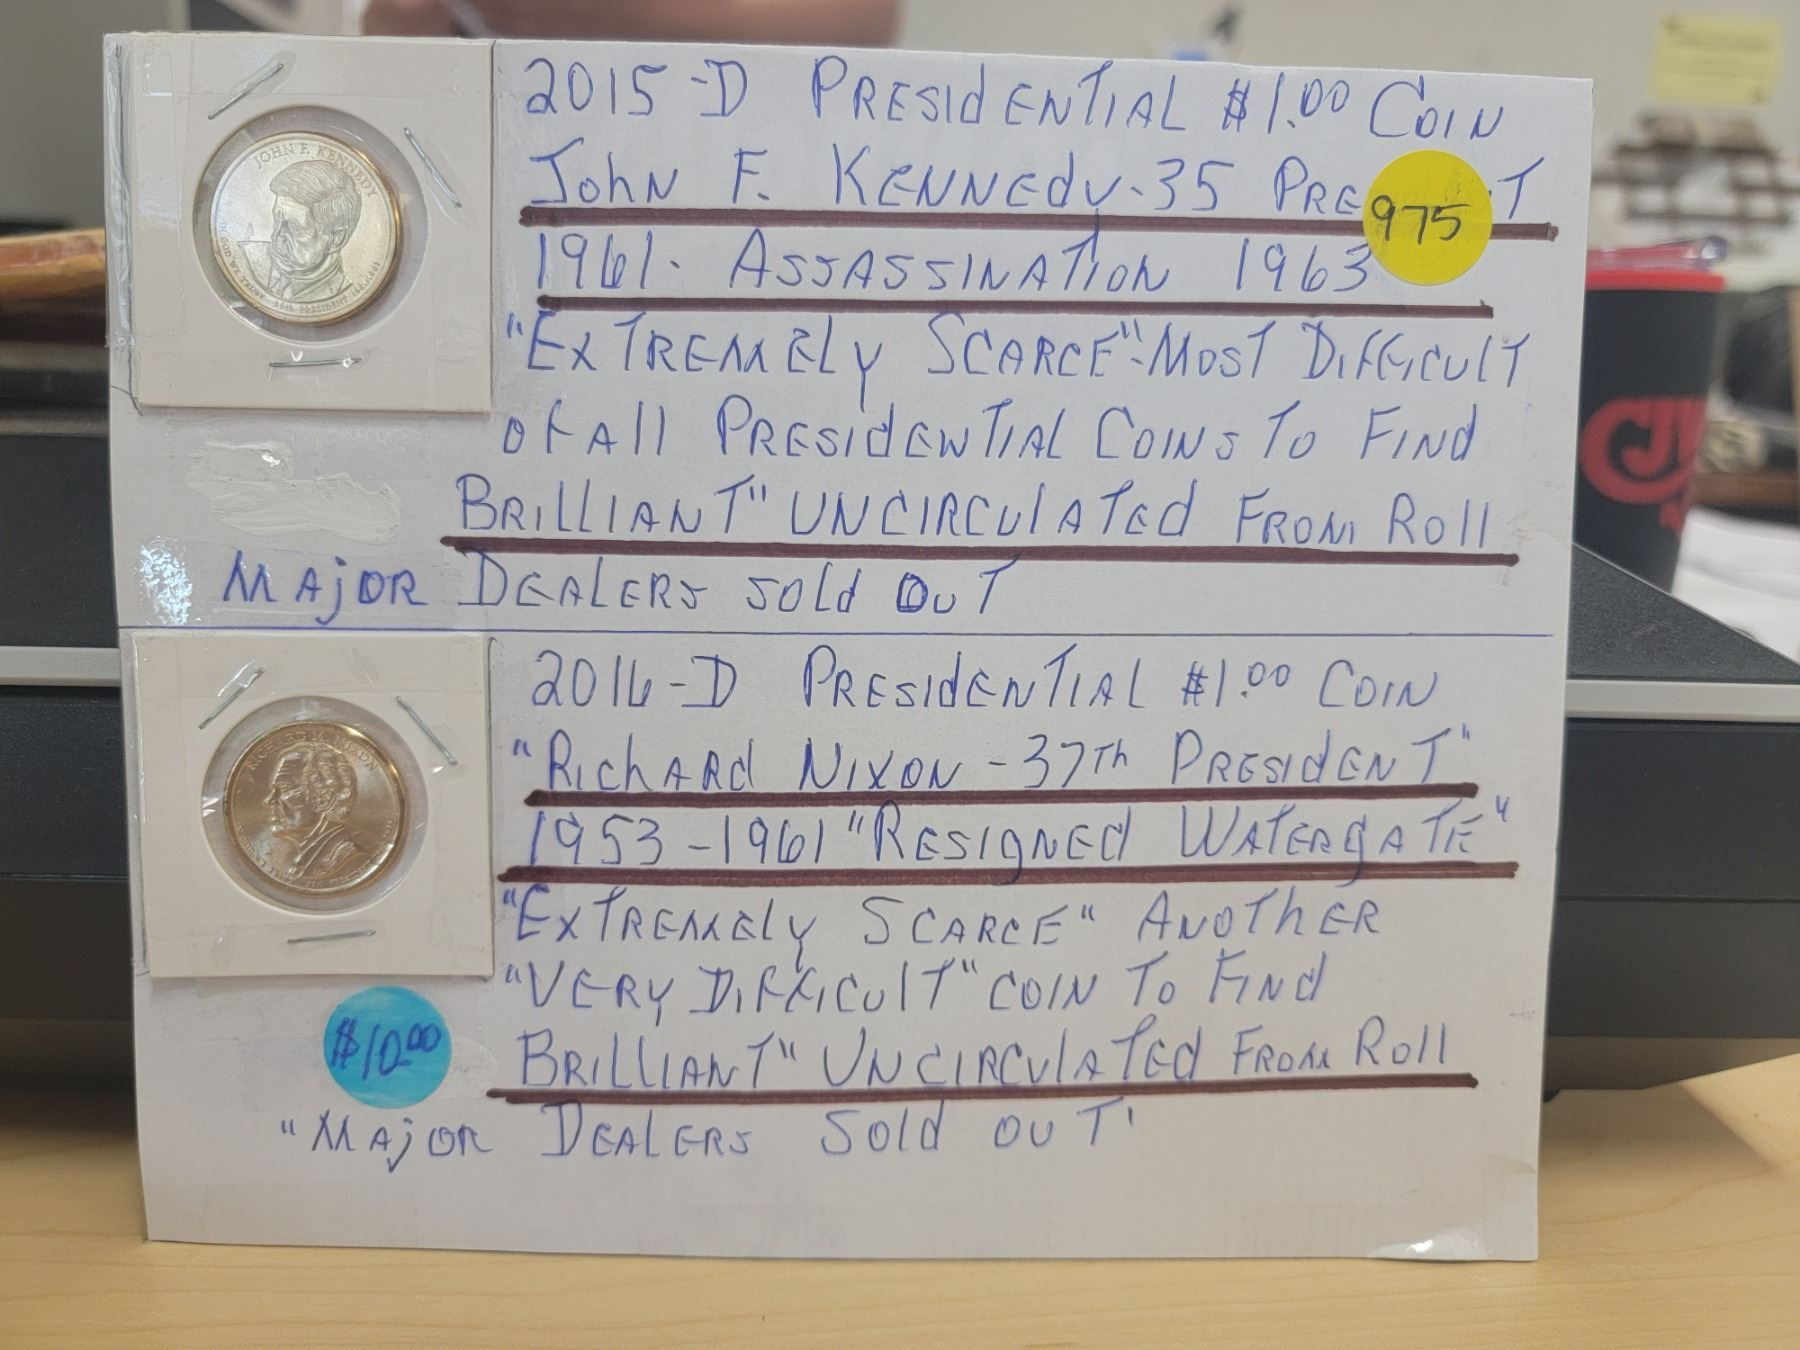 2015-D PRESIdENTIAL $1.00 COIN
JohN F. KENNEdy-35 PRE T
975
1961. ASSASSINATION 1963
"EXTREMELy SCARCE"-MOST DIFFICULT
of All PRESIdENTIAL COINS TO FIND
BRILLIANT" UNCIRCULATEd FROM Roll
MAjOR DEALERS SOLd OUT
JOHN F. KENNEDY
IN GOD WE TRUST 35TH PRESIDENT 1961-1963
2016-D PRESIdENTIAL $1.00 COIN
"RIChARd NIXON - 37Th PRESIdENT"
1953-1961 "RESIgNEd WATERgATE"
"EXTREMELy SCARCE" ANOThER
"VERY DIFFICULT" COIN TO FINd
BRILLIANT" UNCIRCULATEd FROM Roll
"MAjOR DEALERS SOLd OUT'
RICHARD M. NIXON
$10.00